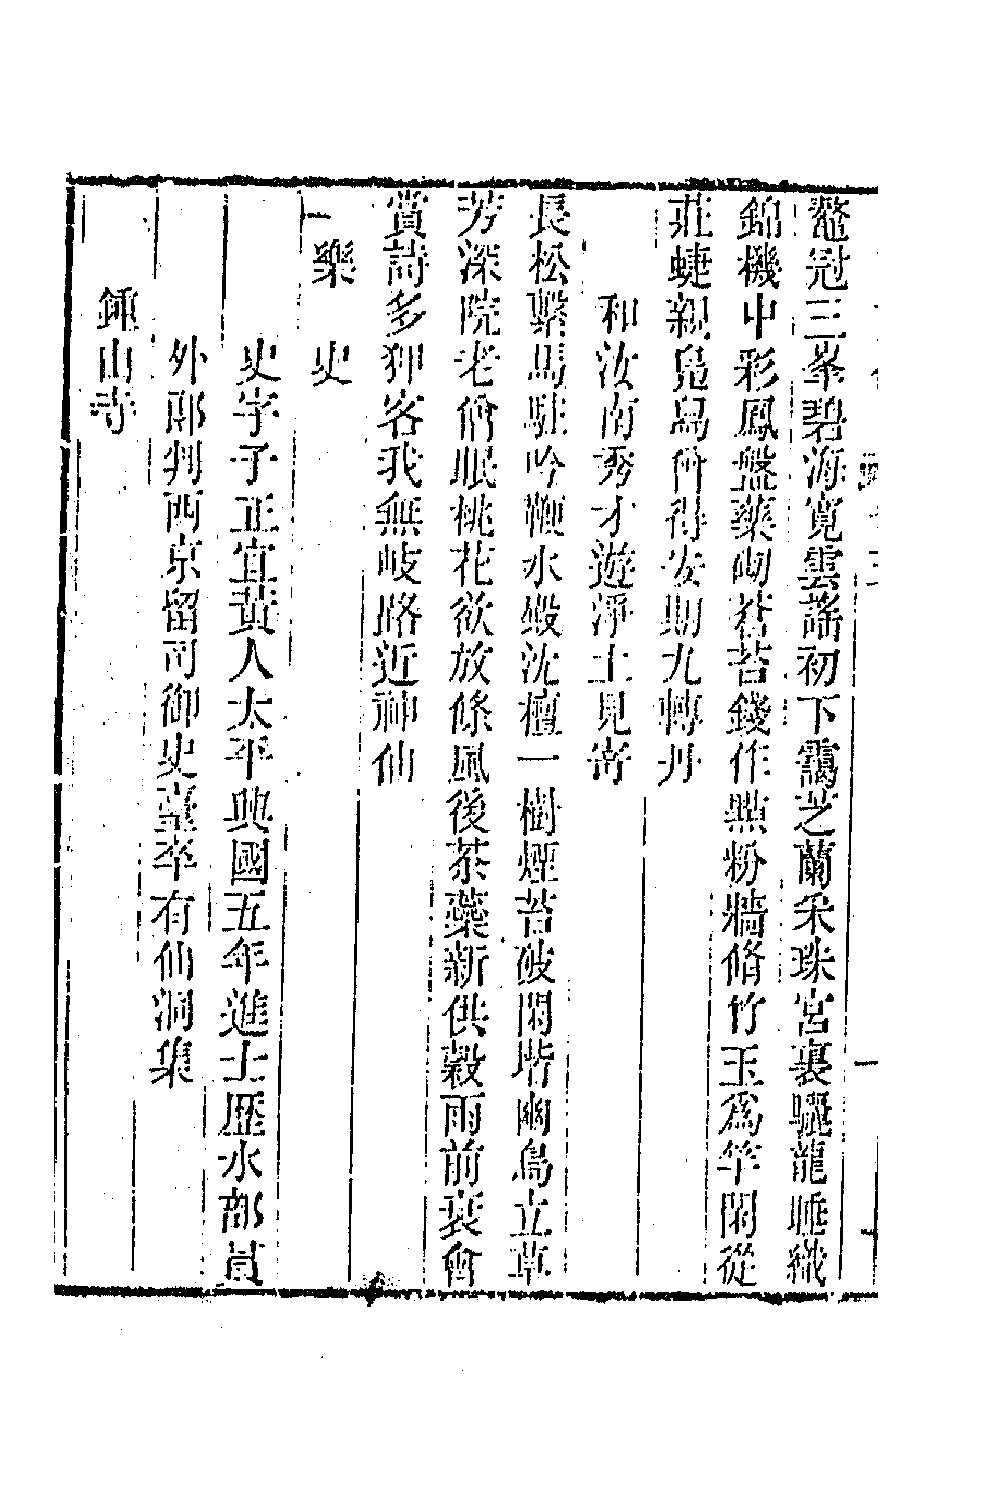 鼇冠三峯碧海寬雲謠初下靄芝蘭采珠宮裏驪龍睡織
錦機中彩鳳盤藥砌蒼苔錢作點粉牆脩竹玉為竿閑從
莊蜨親鳧舄會得安期九轉丹
和汝南秀才遊淨土見寄
長松繫馬駐吟鞭水殿沈檀一樹煙苔破閑堦幽鳥立草
芳深院老僧眠桃花欲放條風後茶藥新供穀雨前衰會
賞詩多狎客我無岐路近神仙
樂史
史字子正宜黃人太平興國五年進士歷水部員
外郎判西京留司御史臺卒有仙洞集
鍾山寺